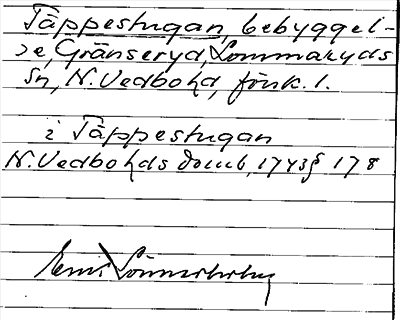 Täppestugan, bebyggel-
se, Gränseryd, Lommaryds
sn, N. Vedbo hd, Jönk. l.
i Täppestugan
N. Vedbo hds domb, 1743 § 178